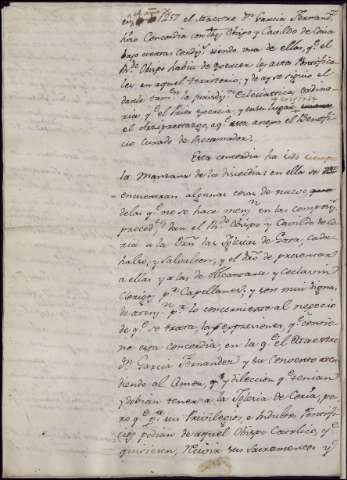 en el año 1257 el Maestre Dn. Garcia Fernand.
hizo Concordia con dho Obispo y Cavildo de Coria
bajo ciertas condiz. siendo una de ellas, q.e el
Rdo. Obispo habia de exercer los actos Pontifica-
les en aquel territorio, y de ay se siguio el
darle la jurisdiz.n Eclesiastica ordina-
ria, y el Prior exercia, y en su lugar
el Arciprestazgo, a q.e esta anejo el Benefi-
cio Curado de Rocamador.
Esta concordia ha sido siempre
la Manzana de la discordia, en ella se
encuentran algunas cosas de nuevo
de las q.e no se hace menz.n en las
preced.tes dan el Rdo. Obispo y Cavildo de Co-
ria a la Orn. las Iglesias de Gata, Cada-
halso, y Salvaleon, y el dro de presentar
a ellas y a las de Alcantara y Ceclavin
Clerigos, p.a Capellanes, y son muy dignas
de p.r lo concerniente al negocio
de q.e se trata, las expresiones, q.e contie-
ne esta concordia, en la q.e el Maestre
Dn. Garcia Fernandez y su Convento aten-
diendo al Amor, y dileccion q.e tenian
y debian tener a la Iglesia de Coria, pe-
ro q.e p.r un Privilegio, e Indulto Pontifi-
cio, podian de aquel Obispo Catolico, q.e
quisiesen, recivir sus Sacramentos y